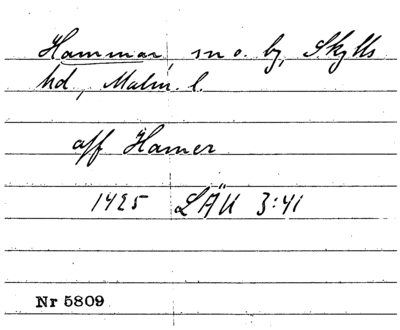 Hammar, sn o. by, Skytts
hd, Malm. l.
aff Hamer
1425 LÄU 3:41
Nr 5809